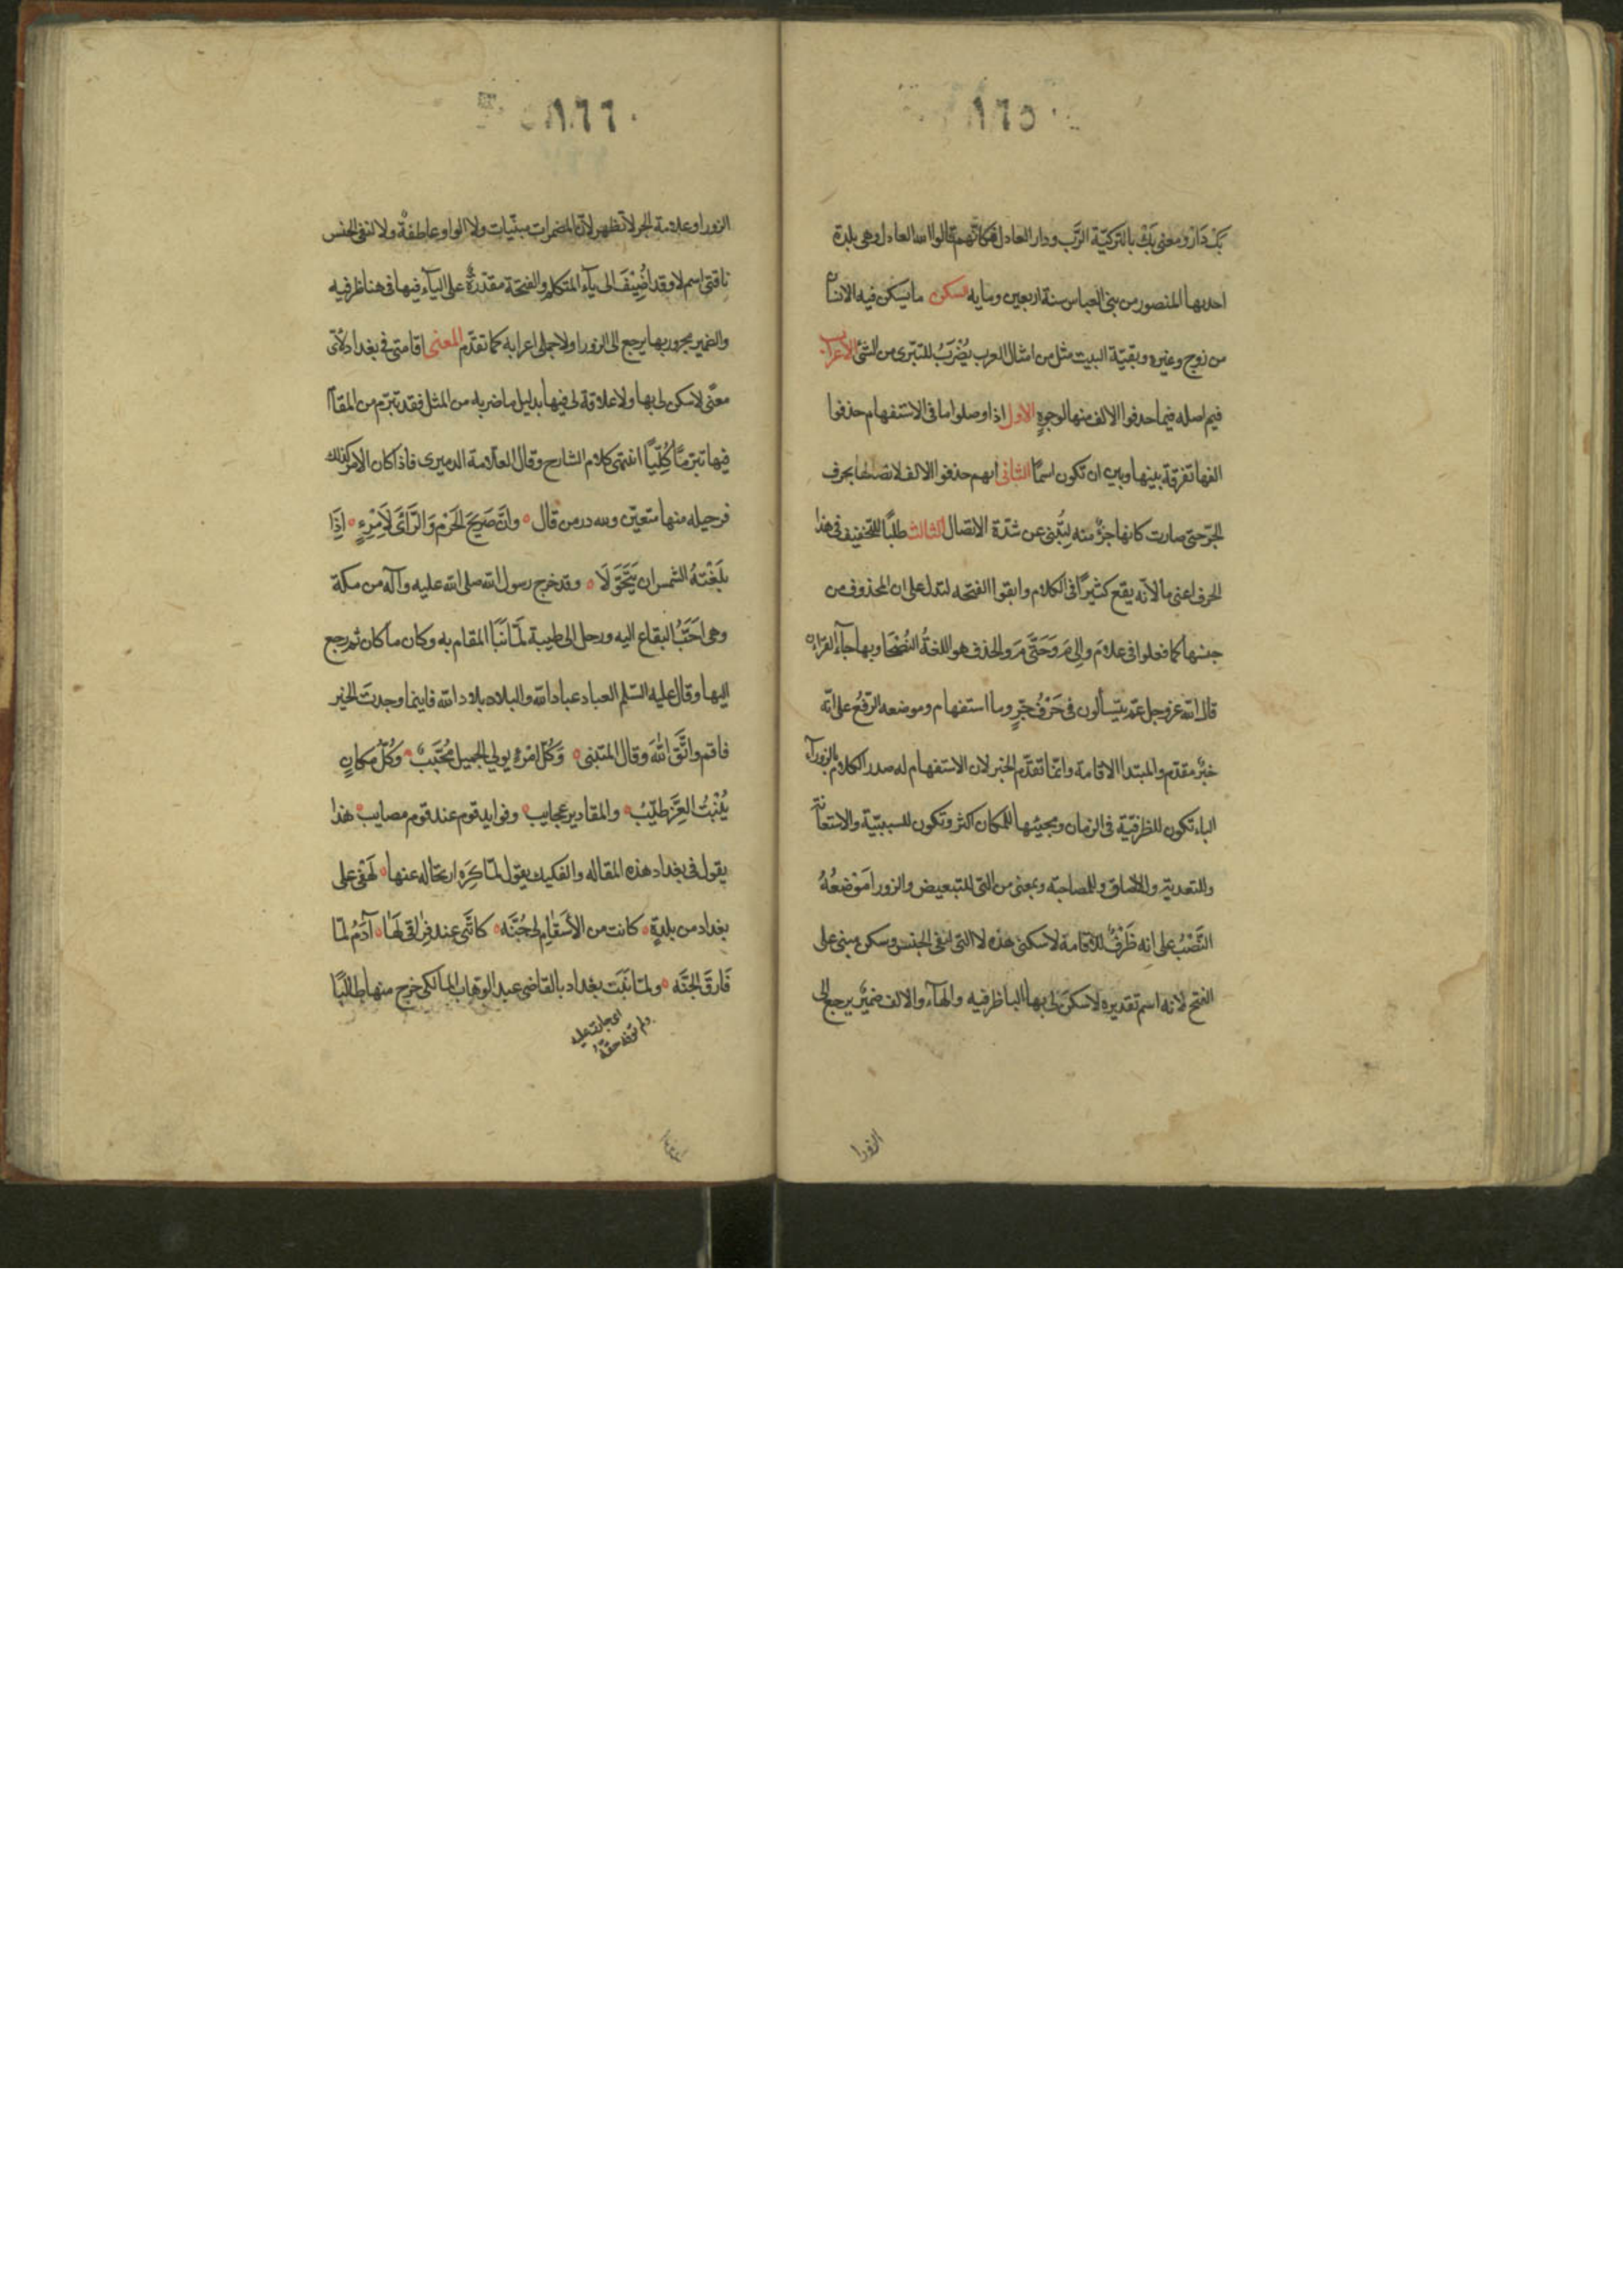 ١٦٥
بَكْ دَاَرْ ومعنى بَكْ بالتركيّة الرَّب ودار العادل فكانّهم قالوا الله العادل وهى بلدة
احدثها المنصور من بنى العباس سنة اربعين ومايه سكن ما يسكن فيه الانسان
من زوج وغيره وبقيّة البيت مثل من امثال العرب يُضْرَبُ للتبّرى من الشئ الاعراب
فيم اصله فيما حذفوا الالف منها لوجوهٍ الاول اذا وصلوا ما فى الاستفهام حذفوا
الفها تفرقة بينها وبين ان تكون اسمًا الثانى انهم حذفوا الالف لاتصالها بحرف
الجّر حتى صارت كانها جزءٌ منه لِيُنبى عن شدّة الاتصال الثالث طلبًا للتخفيف فى هذا
الحرف اعنى ما لانّه يقع كثيرًا فى الكلام وابقوا الفتحه لتدل على ان المحذوف من
جنسها كما فعلوا فى علامَ وإلى مَ وَحَتَّى مَ والحذف هو اللغةُ الفُصْحَا وبها جآء القرآن
قال الله عزوجل عمّ يتسألون فى حَرْفُ جّرٍ وما استفهام وموضعه الرَّفعُ على انّه
خبرٌ مقدّم والمبتدا الاقامة وانّما تقدّم الخبر لان الاستفهام له صدر الكلام بالزورآء
الباء تكون للظرفيّة فى الزمان ومجيئها للمكان اكثر وتكون للسببيّة والاستعانة
وللتعدية وللالصاق وللمصاحبّه وبمعنى من التى للتبعيض والزورا مَوْضعُهُ
النَّصْبُ على انه ظَرْفٌ للاقامة لا سكنى هذه لا التى لنفى الجنس وسكن مبنى على
الفتح لانه اسم تقديره لا سكنَ لى بها البا ظرفيه والهآء والالف ضميٌر يرجع الى
الزورا
١٦٦
الزورا وعلامة الجر لا تظهر لانّ المضمرات مبنّيات ولا الواو عاطفةٌ ولا لنفى الجنس
ناقتى اسم لا وقد اُضِيْفَ الى يآء المتكلم والفتحة مقدّرةٌ على اليآء فيها فى هنا ظرفيه
والضمير مجرور بها يرجع الى الزورا ولا جملى اعرابه كما تقدّم المعنى اقامتى فى بغداد لاىّ
معنًى لا سكن لى بها ولا علاقة لى فيها بدليل ما ضربه من المثل فقد تبرّم من المقام
فيها تبّرمًا كُلّيًا انتهى كلام الشارح وقال العلّامة الدميرى فاذا كان الامر كذلك
فرحيله منها متعيّن ولله در من قال ۰ وانّ صَرِيحَ الحَزْمِ وَالرَّائَ لاِمْرِءٍ ۰ اِذَا
بَلَغَتْهُ الشمس ان يَتَحَوَّلَا ۰ وقد خرج رسول الله صلى الله عليه وآله من مكة
وهى احَبُّ البقاع اليه ورحل الى طيبة لَمّا نَبَا المقام به وكان ما كان ثم رجع
اليها وقال عليه السّلم العباد عباد الله والبلاد بلاد الله فاينما وجدتَ الخير
فاقم واتَّقِ اللهَ وقال المتنبى ۰ وَكُلّ امْرُءٍ يولي الجميل مُحَبَّبٌ ۰ وَكُلّ مكانٍ
يُنْبُتُ العِزَّ طَيّبُ ۰ والمقادير عجايب ۰ وفوايد قوم عند قوم مصايب ۰ هذا
يقول فى بغداد هذه المقاله والفكيك يقول لمّا كَرِهَ ارتحاله عنها ۰ لَهْفى على
بغداد من بلدةٍ ۰ كانت من الأسقام لى جُنَّه ۰ كاَنَّنى عند فِرٰاقى لَهَا ۰ آدمُ لمّا
فَارَقَ الجَنَّه ۰ ولمّا نَبَت بغداد بالقاضى عبد الوهاب المالكى خرج منها طالبًا
اى جارت عليه
ولم توفه حقّهُ